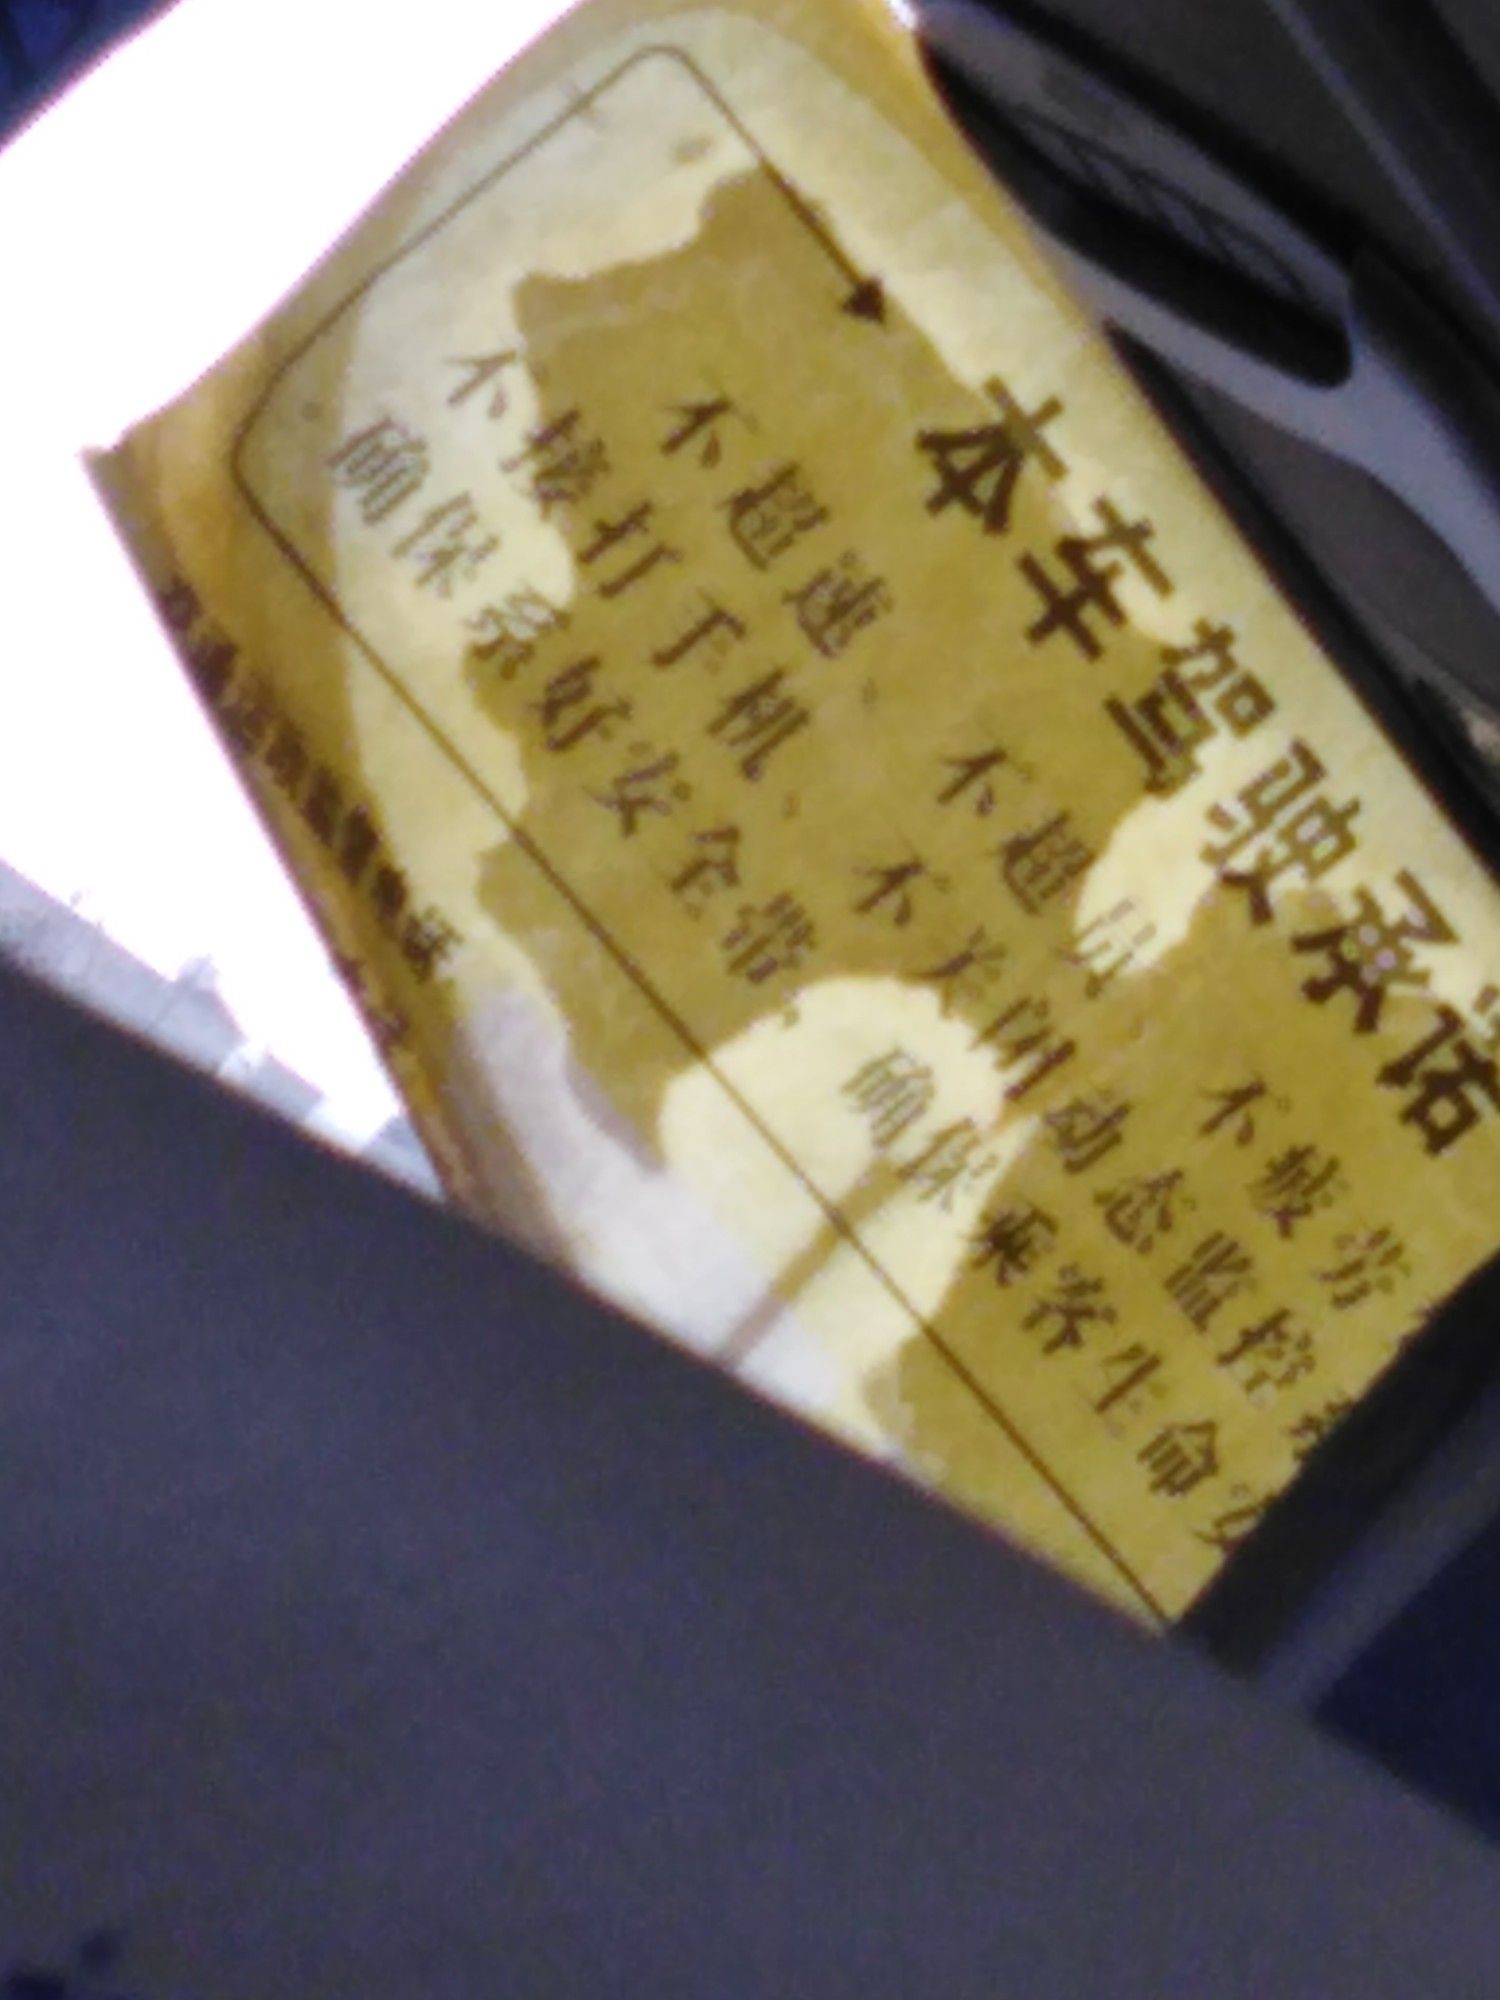 本车驾驶承诺
不超速、不超员、不疲劳
不接打手机、不关闭动态监控
确保系好安全带，确保乘客生命安